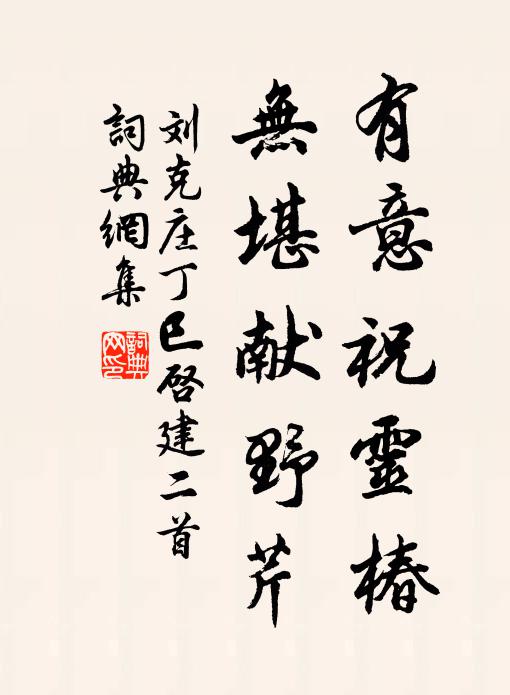 有意祝靈椿
無堪献野芹
刘克庄丁巳啓建二首
詞典網集
詞典网印